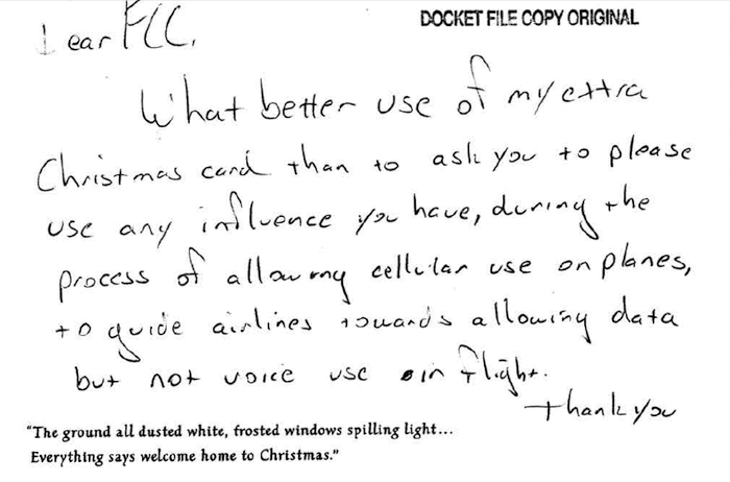 DOCKET FILE COPY ORIGINAL
Dear FCC,
What better use of my extra
Christmas card than to ask you to please
use any influence you have, during the
process of allowing cellular use on planes,
to guide airlines towards allowing data
but not voice use in flight.
Thank you
"The ground all dusted white, frosted windows spilling light...
Everything says welcome home to Christmas."